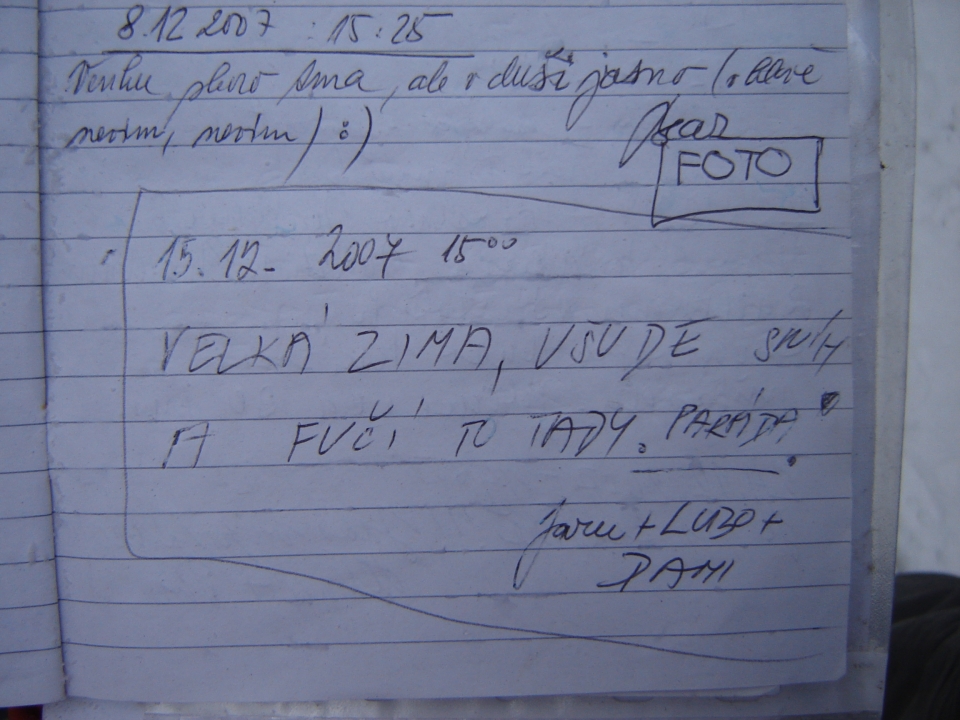 8.12 2007 : 15:25
Venku skoro tma, ale v duši jasno (v hlavě
nevím, nevím) :)
FOTO
15.12. 2007 15⁰⁰
VELKÁ ZIMA, VŠUDE SNÍH
A FUČÍ TO TADY. PARÁDA!
+ LUBO +
DAMI